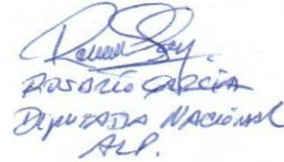 ROSARIO GARCIA
DIPUTADA NACIONAL
ALP.